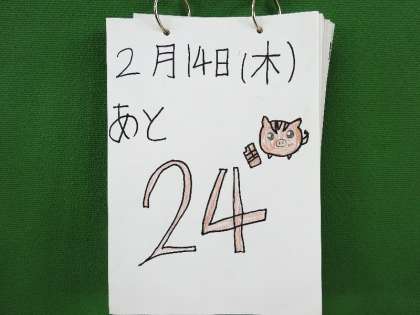 2月14日(木)
あと
24